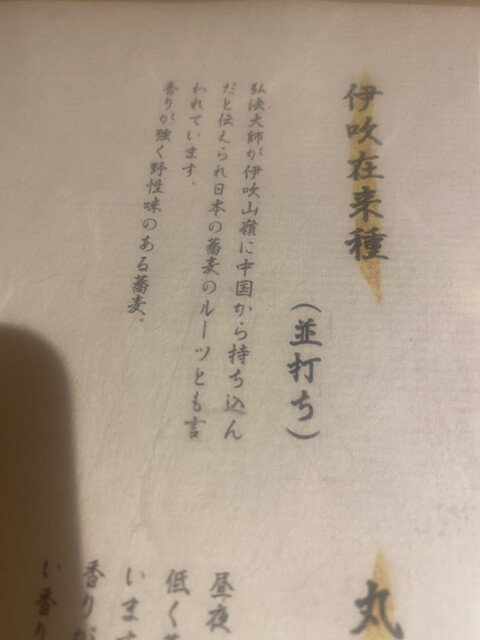 伊吹在来種
（並打ち）
弘法大師が伊吹山嶺に中国から持ち込ん
だと伝えられ日本の蕎麦のルーツとも言
われています。
香りが強く野性味のある蕎麦。
丸
昼夜
低く
います
香りが
い香り